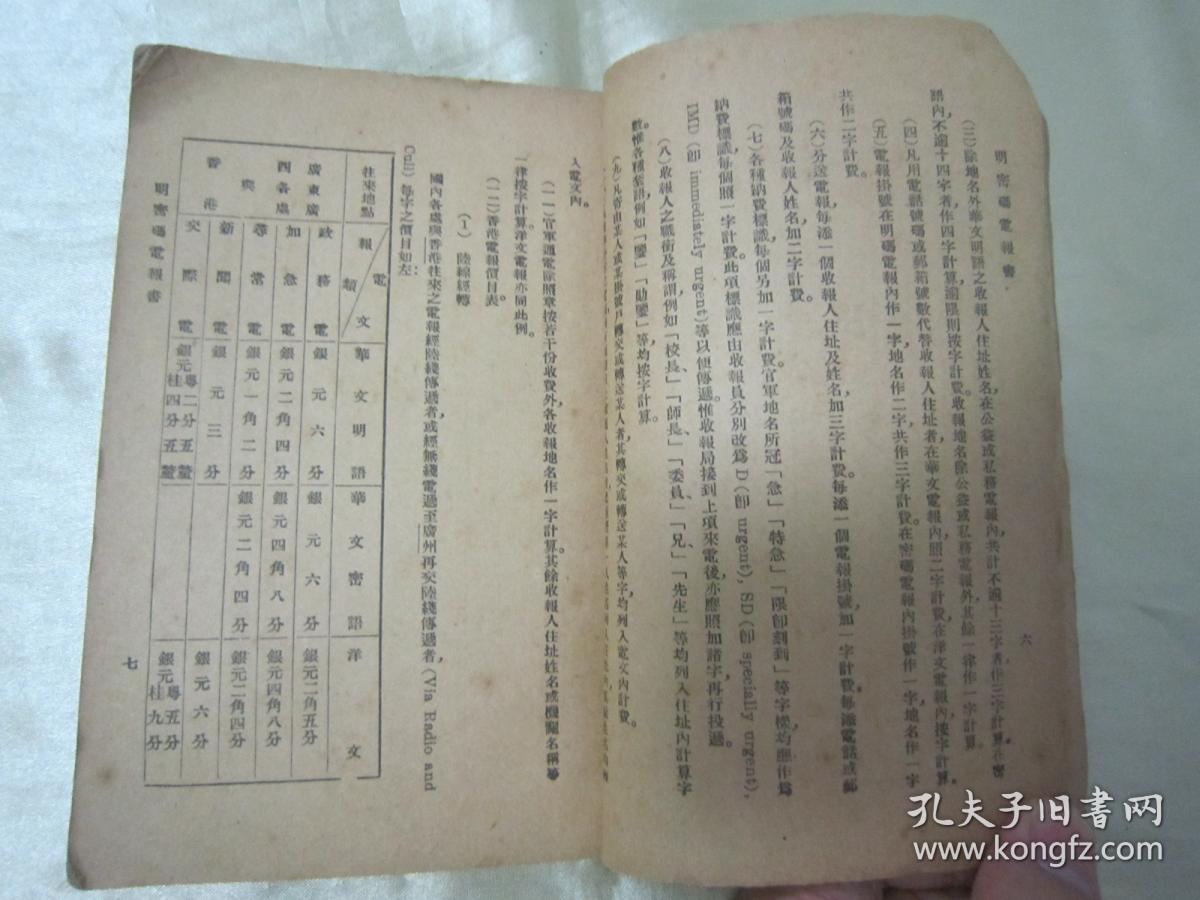 明密碼電報書
六
(三)除地名外華文明語之收報人住址姓名,在公益或私務電報內,共計不逾十三字者,作三字計算,在密
語內,不逾十四字者作四字計算,逾限則按字計費。收報地名除公益或私務電報外,其餘一律作一字計算。
(四)凡用電話號碼或郵箱號數代替收報人住址者,在華文電報內,照二字計費,在洋文電報內,按字計算。
(五)電報掛號,在明碼電報內作一字,地名作二字,共作三字計費。在密碼電報內,掛號作一字,地名作一字
共作二字計費。
(六)分送電報,每添一個收報人住址及姓名,加三字計費。每添一個電報掛號,加一字計費。每添電話或郵
箱號碼及收報人姓名,加二字計費。
(七)各種納費標識,每個另加一字計費。官軍地名所冠「急」「特急」「限即到」等字樣,均應作爲
納費標識,每個照一字計費。此項標識應由收報員分別改爲D(即urgent),SD(即specially urgent),
IMD(即immediately urgent)等以便傳遞。惟收報局接到上項來電後,亦應照加諸字,再行投遞。
(八)收報人之職銜及稱謂,例如「校長」「師長」「委員」「兄」「先生」等,均列入住址內計算字
數。惟各種套語,例如「鑒」「助鑒」等,均按字計算。
(九)凡寄由某人或某掛號戶轉交或轉送某人者,其轉交或轉送某人等字,均列入電文內計費。
入電文內。
(一一)官軍通電,除照章按若干份收費外,各收報地名作一字計算。其餘收報人住址姓名或機關名稱等
一律按字計算。洋文電報亦同此例。
(一二)香港電報價目表
(1) 陸線經轉
國內各處與香港往來之電報,經陸綫傳遞者,或經無綫電遞至廣州再交陸綫傳遞者,(Via Radio and
Call) 每字之價目如左:
往來地點 電報類 文 華文明語 華文密語 洋文
廣東廣西各處與香港
政務電 銀元六分 銀元六分 銀元二角五分
加急電 銀元二角四分 銀元四角八分 銀元四角八分
尋常電 銀元一角二分 銀元二角四分 銀元二角四分
新聞電 銀元三分 銀元六分
交際電 銀元粵二分五釐桂四分五釐 銀元粵五分桂九分
明密碼電報書
七
孔夫子旧书网
www.kongfz.com